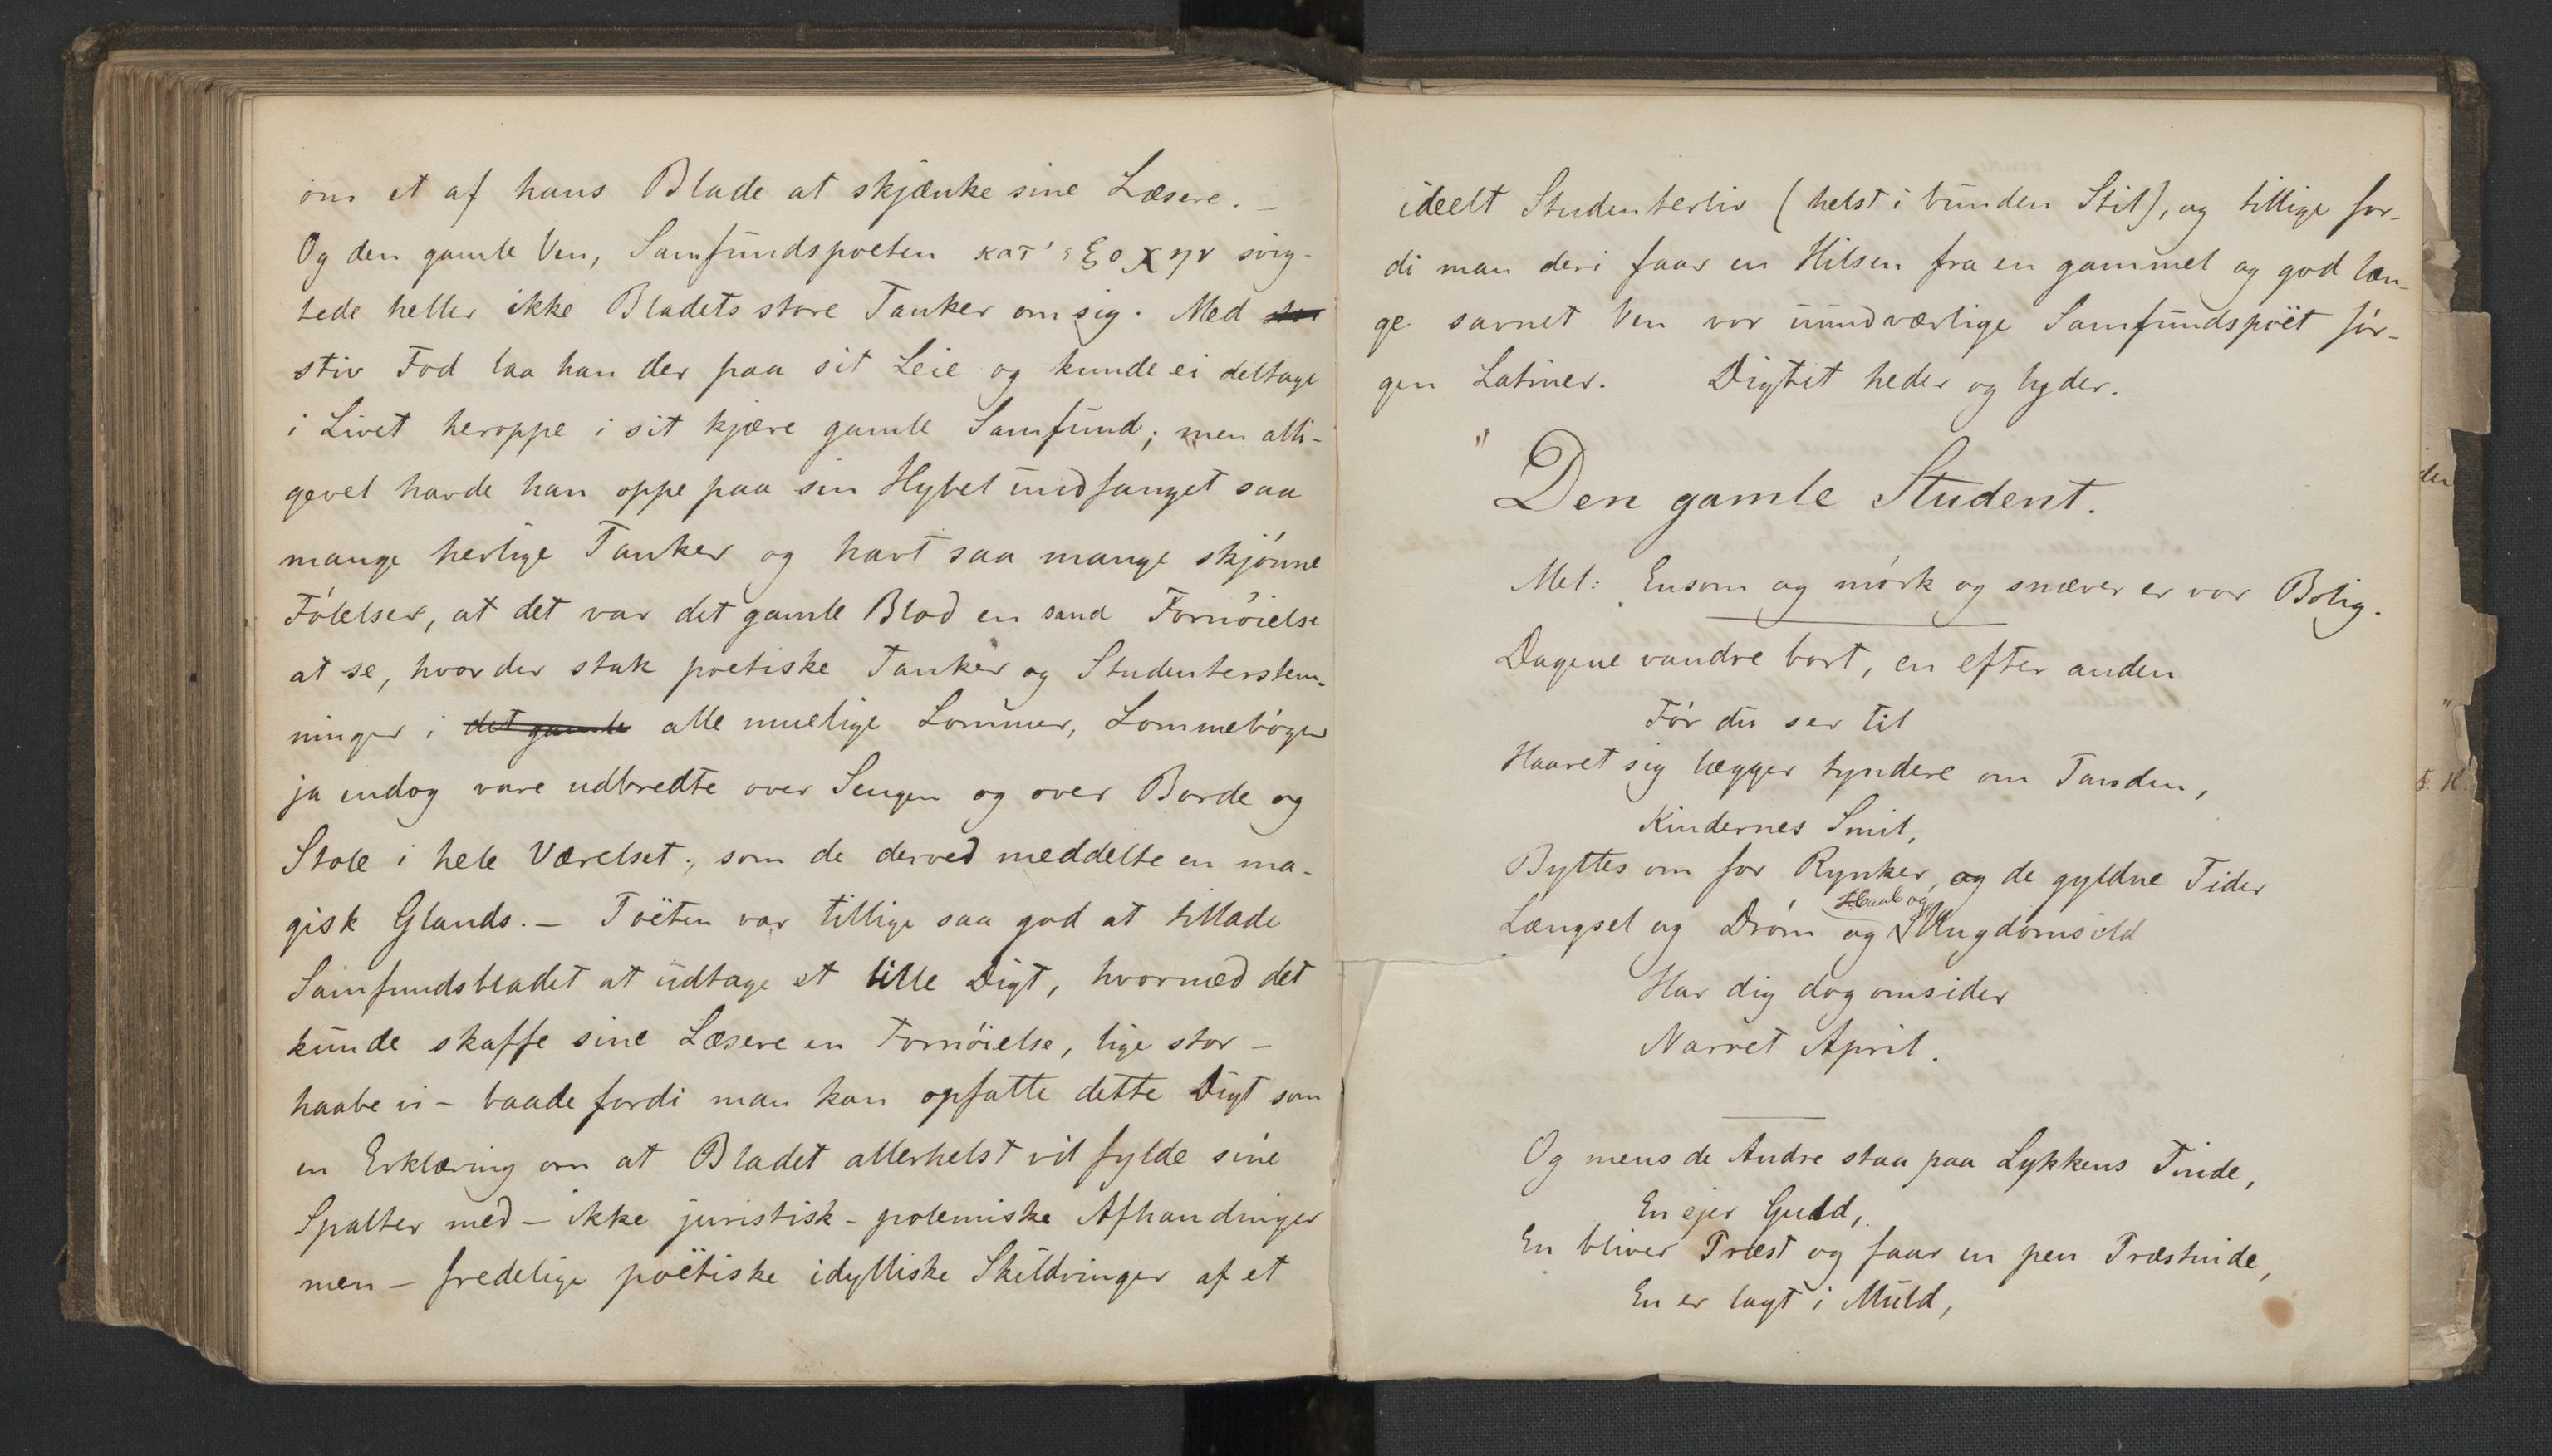 om et af hans Blade at skjænke sine Læsere. –
Og den gamle Ven, Samfundspoeten κατ' εξοχην svig-
tede heller ikke Bladets store Tanker om sig. Med stor
stiv Fod laa han der paa sit Leie og kunde ei deltage
i Livet heroppe i sit kjære gamle Samfund; men alli-
gevel havde han oppe paa sin Hybel undfanget saa
mange herlige Tanker og havt saa mange skjönne
Fölelser, at det var det gamle Blad en sand Fornöielse
at se, hvor der stak poetiske Tanker og Studenterstem-
ninger i det gamle alle muelige Lommer, Lommebøger
ja endog vare udbredte over Sengen og over Borde og
Stole i hele Værelset, som de derved meddelte en ma-
gisk Glands. – Poëten var tillige saa god at tillade
Samfundsbladet at udtage et lille Digt, hvormed det
kunde skaffe sine Læsere en Fornöielse, lige stor –
haabe vi – baade fordi man kan opfatte dette Digt som
en Erklæring om at Bladet allerhelst vil fylde sine
Spalter med – ikke juristisk-polemiske Afhandinger
men – fredelige poëtiske idylliske Skildringer af et
ideelt Studenterliv (helst i bunden Stil), og tillige for-
di man deri faar en Hilsen fra en gammel og god læn-
ge savnet Ven vor uundværlige Samfundspoët Jör-
gen Latiner. Digtet heder og lyder.
"
Den gamle Student.
Mel: Ensom og mörk og snæver er vor Bolig.
Dagene vandre bort, en efter anden
För du ser til
Haaret sig lægger tyndere om Panden,
Kindernes Smil,
Byttes om for Rynker, og de gyldne Tider
Haab og
Længsel og Dröm og Ungdomsild
Har dig dog omsider
Narret April.
Og mens de Andre staa paa Lykkens Tinde,
En ejer Guld,
En bliver Præst og faar en pen Præstinde,
En er lagt i Muld,